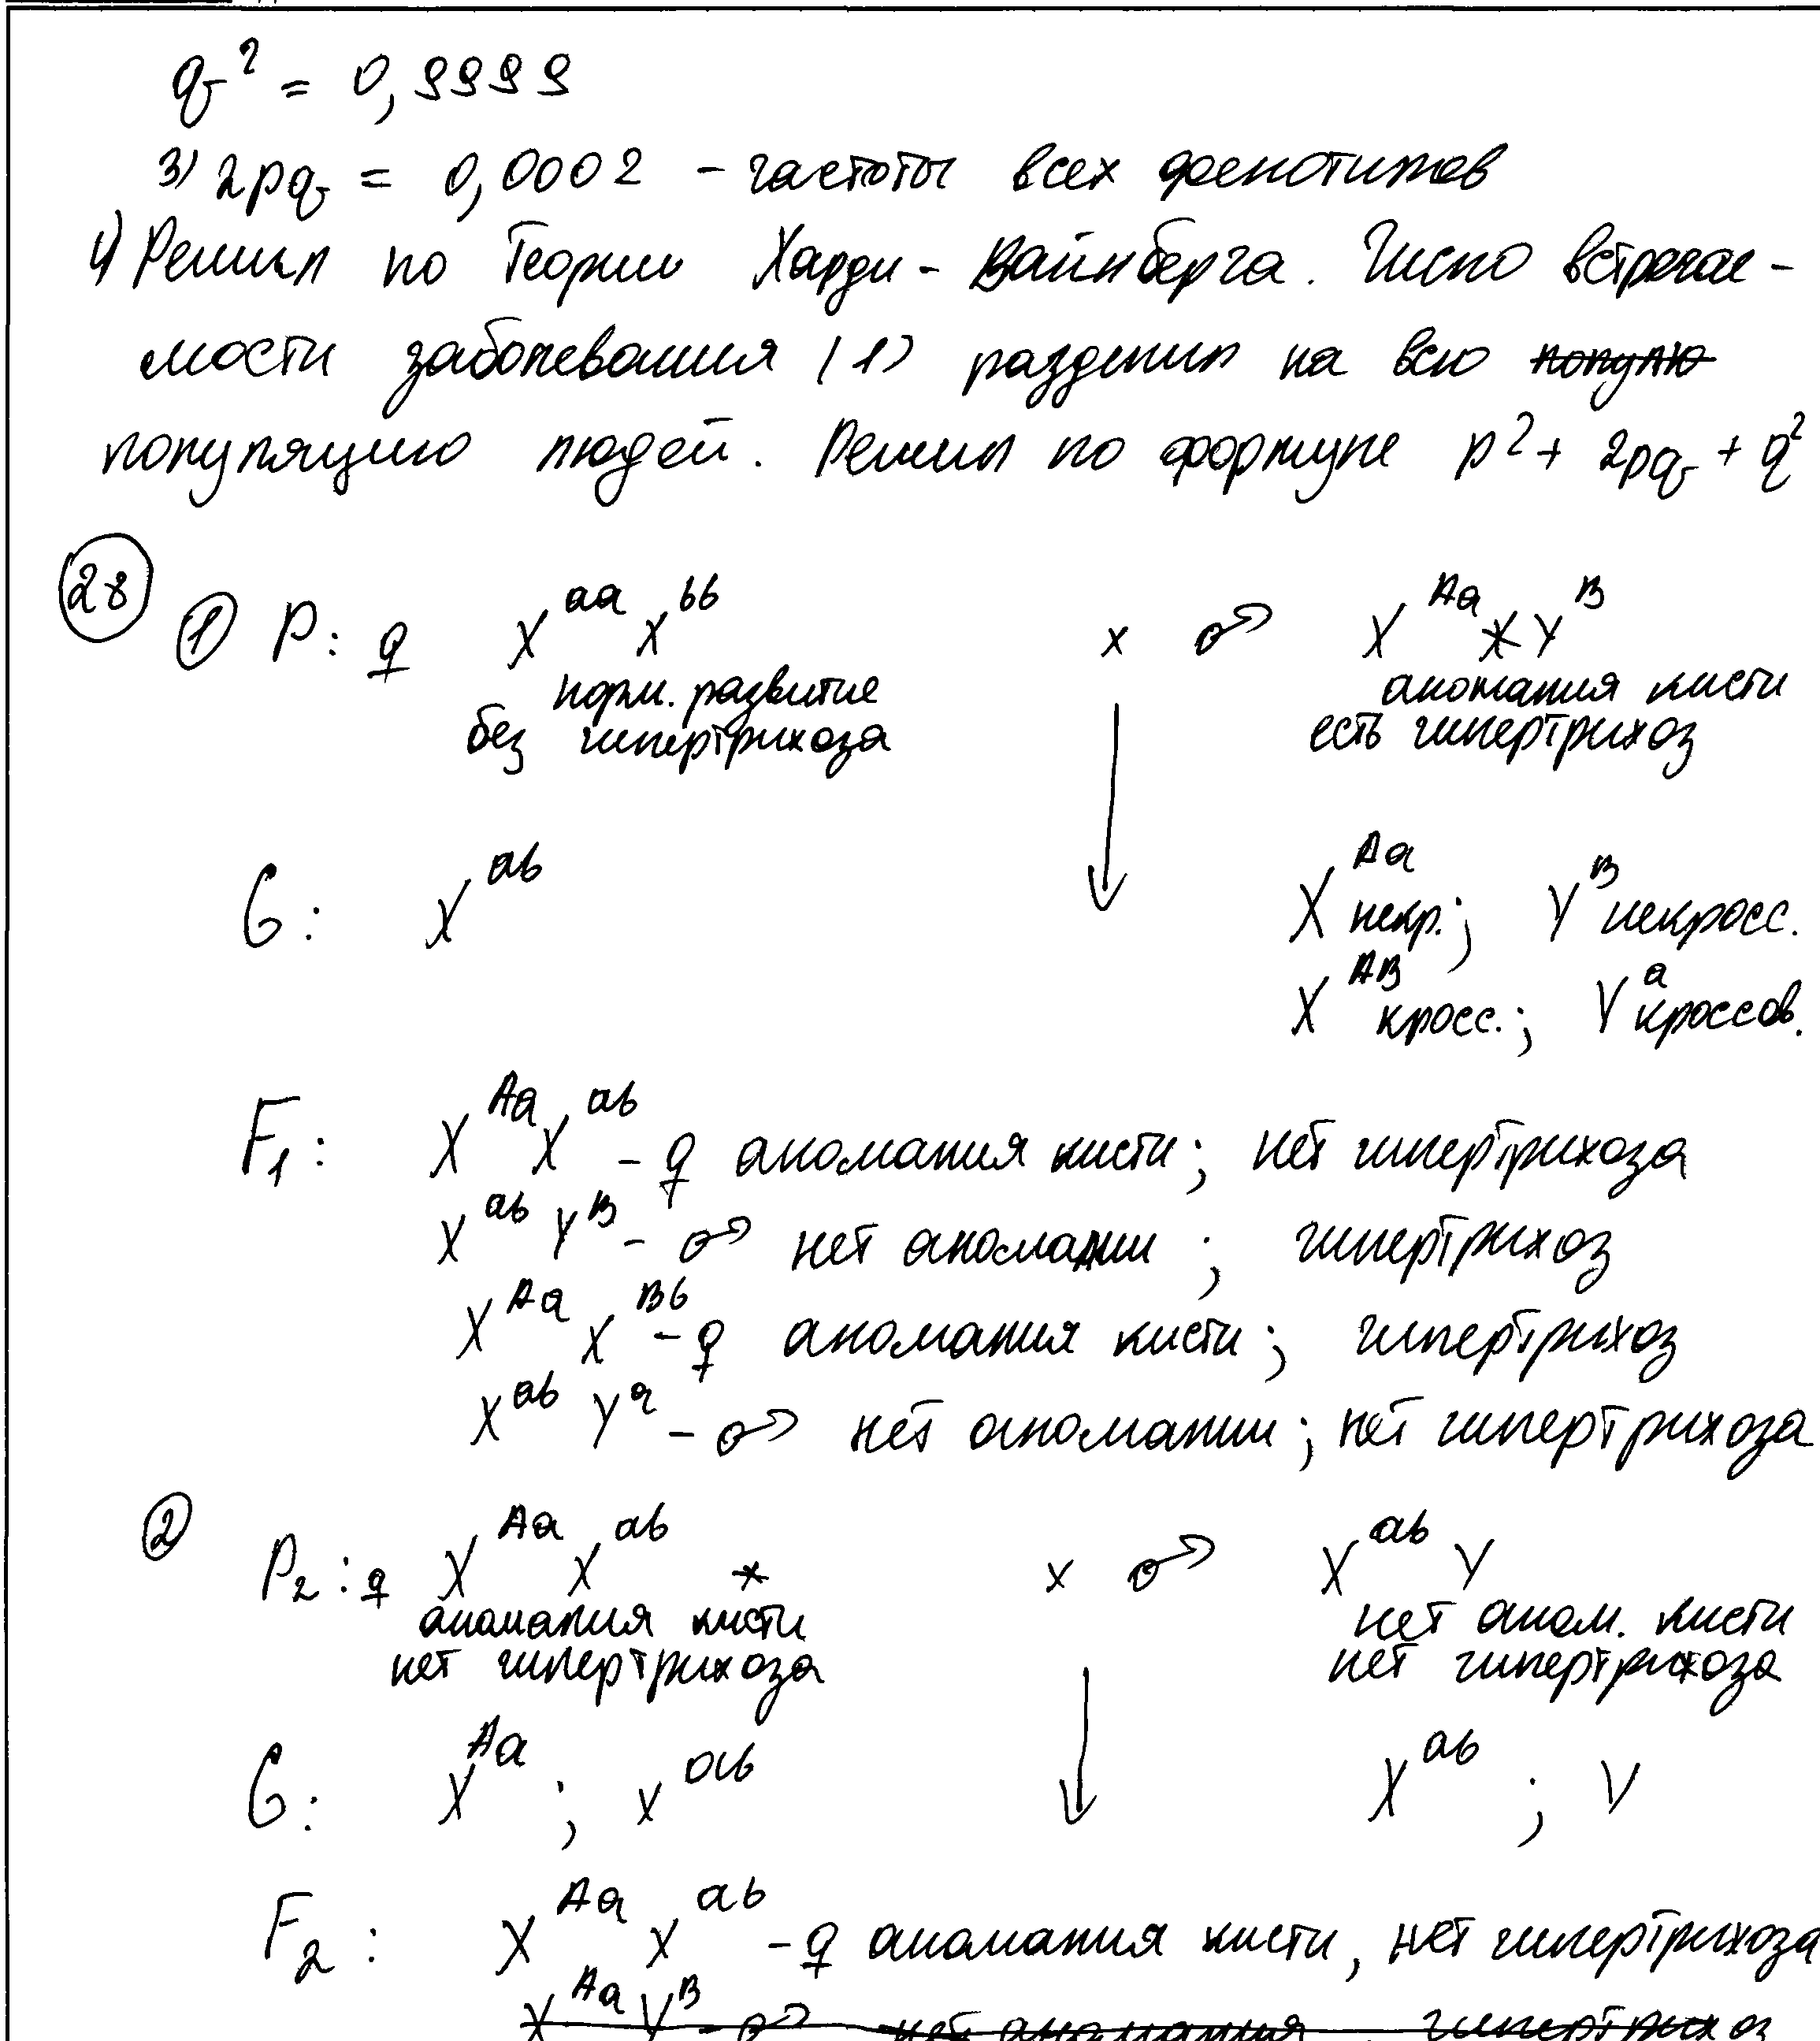 q² = 0,9999
3) 2pq = 0,0002 - частоты всех фенотипов
4) Решил по Теории Харди - Вайнберга. Число встречае-
мости заболевания (1) разделил на всю популю
популяцию людей. Решил по формуле p² + 2pq + q²
28 1 P: ♀ X^aa X^bb × ♂ X^Aa X Y^B
норм. развитие аномалия кисти
без гипертрихоза есть гипертрихоз
G: X^ab X^Aa некр.; Y^B некросс.
X^AB кросс.; Y^a кроссов.
F₁: X^Aa X^ab - ♀ аномалия кисти; нет гипертрихоза
X^ab Y^B - ♂ нет аномалии; гипертрихоз
X^Aa X^Bb - ♀ аномалия кисти; гипертрихоз
X^ab Y^a - ♂ нет аномалии; нет гипертрихоза
2 P₂: ♀ X^Aa X^ab × × ♂ X^ab Y
аномалия кисти нет аном. кисти
нет гипертрихоза нет гипертрихоза
G: X^Aa; X^ab X^ab; Y
F₂: X^Aa X^ab - ♀ аномалия кисти, нет гипертрихоза
X^Aa Y^B - ♂ нет аномалия, гипертрихоз